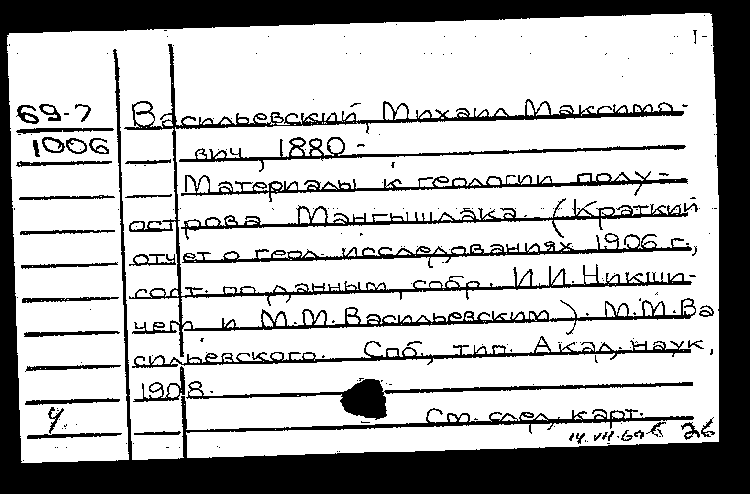 I-
69-7 Васильевский, Михаил Максимо-
1006 вич, 1880 -
Материалы к геологии полу-
острова Мангышлака. (Краткий
отчет о геол. исследованиях 1906 г.,
сост. по данным, собр. И.И. Никши-
чем и М.М. Васильевским). М.М. Ва
сильевского. Спб., тип. Акад. наук,
1908.
См. след. карт.
14.VII.69 г. 26